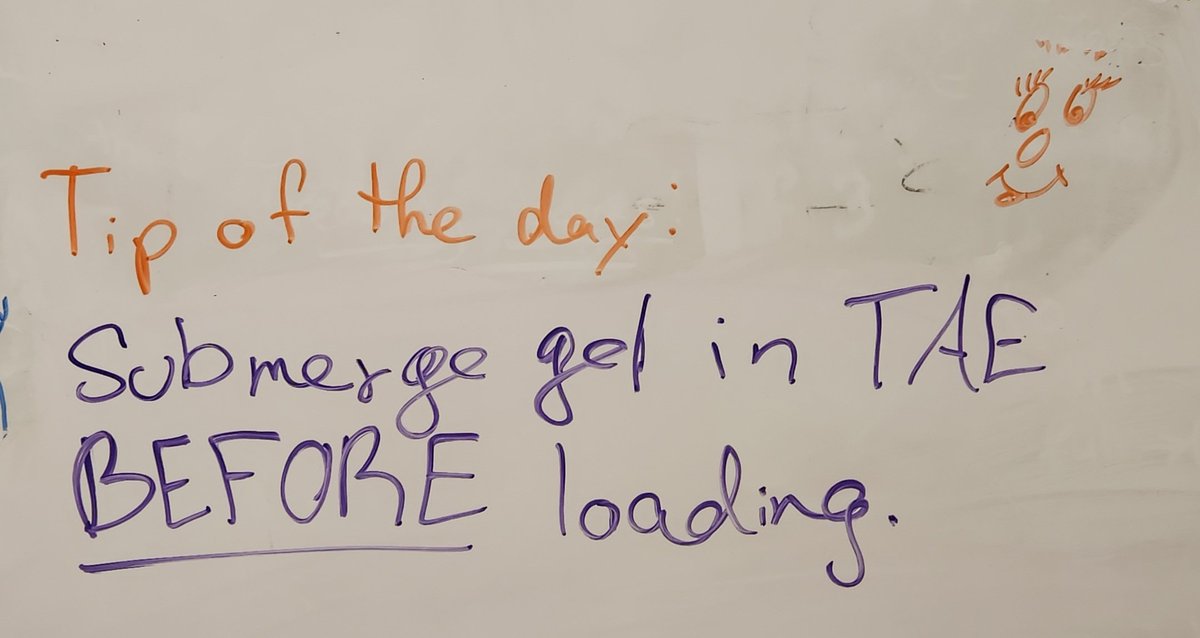 Tip of the day:
Submerge gel in TAE
BEFORE loading.